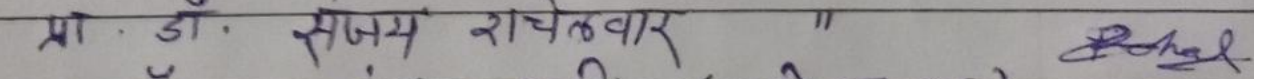 प्रा. डॉ. संजय राचेलवार "